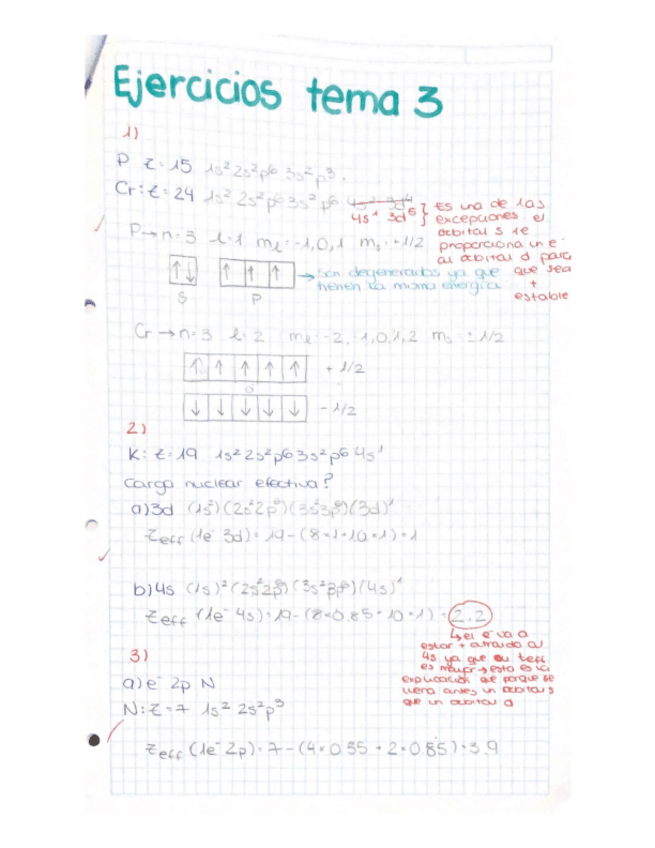 Ejercicios tema 3
1)
P Z=15 1s² 2s²p⁶ 3s²p³.
Cr: Z=24 1s² 2s²p⁶ 3s²p⁶ 4s² 3d⁴
4s¹ 3d⁵ } Es una de las
excepciones el
orbital s le
proporciona un e⁻
al orbital d para
que sea
+
estable
P→n=3 l=1 mₗ=-1,0,1 mₛ=+1/2
↑↓ ↑ ↑ ↑ → Son degenerados ya que
tienen la misma energía
S P
Cr→n=3 l=2 mₗ=-2,-1,0,1,2 mₛ=±1/2
↑ ↑ ↑ ↑ ↑ +1/2
d
↓ ↓ ↓ ↓ ↓ -1/2
2)
K: Z=19 1s² 2s²p⁶ 3s²p⁶ 4s¹
Carga nuclear efectiva?
a) 3d (1s²)(2s²2p⁶)(3s²3p⁶)(3d)¹
Zeff (1e⁻ 3d)=19-(8×1+10×1)=1
b) 4s (1s)²(2s²2p⁶)(3s²3p⁶)(4s)¹
Zeff (1e⁻ 4s)=19-(8×0.85+10×1)=2.2
↳ el e⁻ va a
estar + atraído al
4s ya que su Zeff
es mayor → esta es la
explicación de porque se
llena antes un orbital s
que un orbital d
3)
a) e⁻ 2p N
N: Z=7 1s² 2s²p³
Zeff (1e⁻ 2p)=7-(4×0.35+2×0.85)=3.9